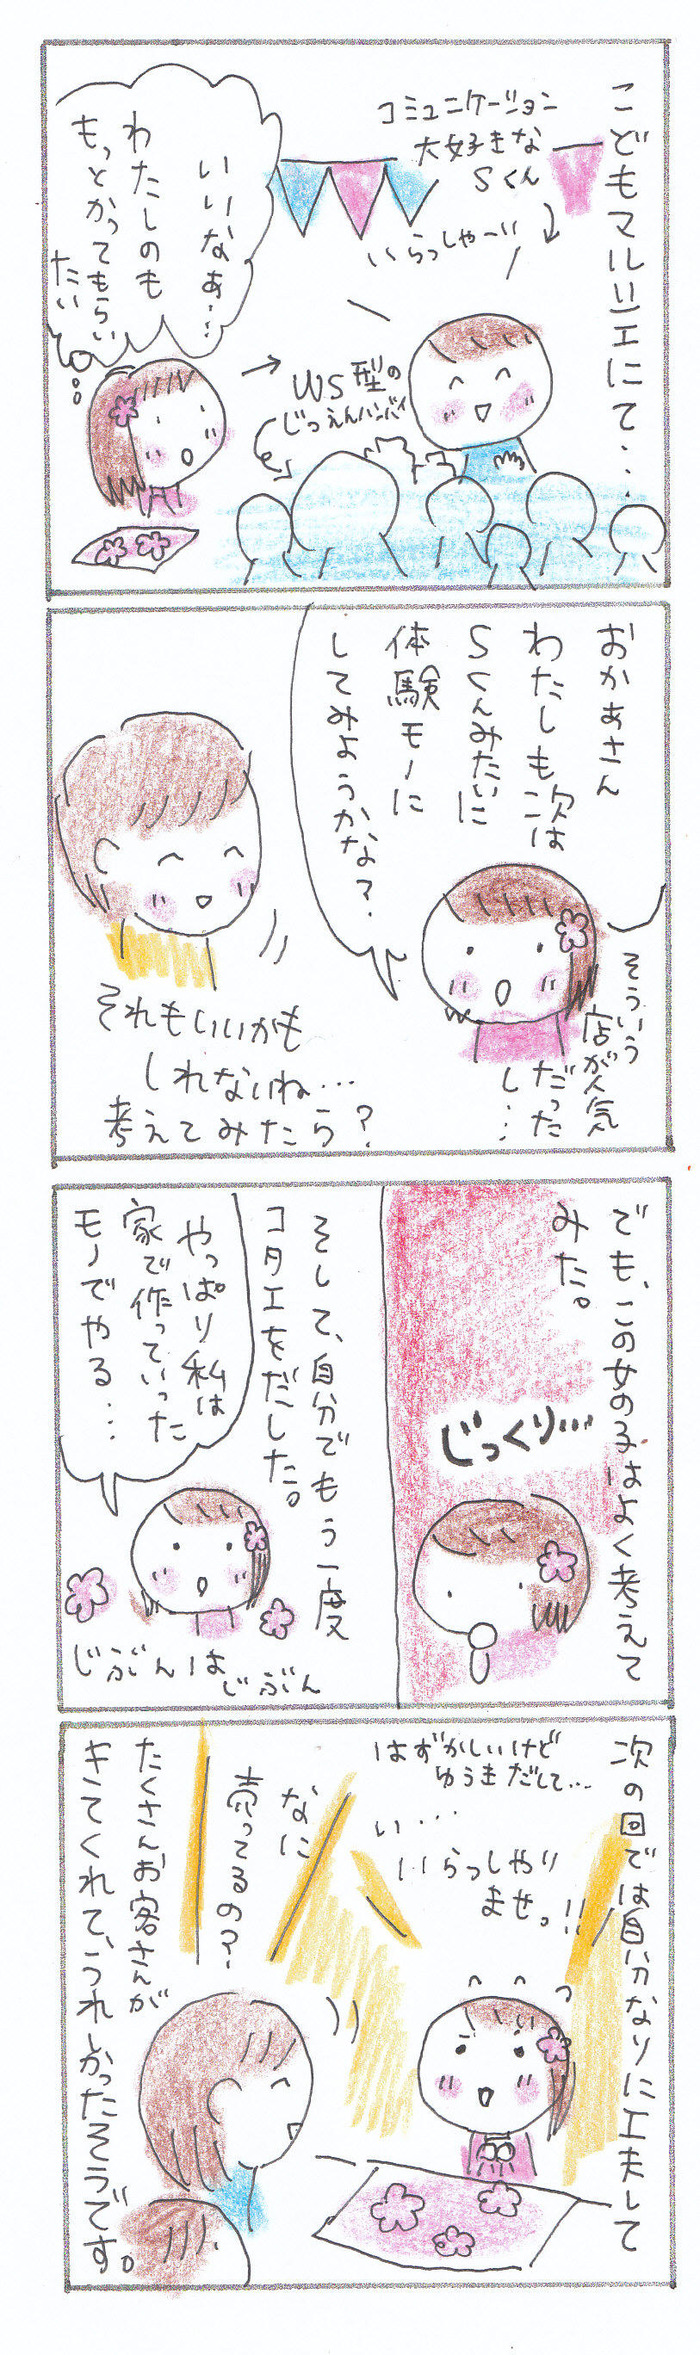 こどもマルシェにて・・・
コミュニケーション
大好きな
Sくん
いらっしゃーい
WS型の
じつえんハンバイ
いいなぁ・・
わたしのも
もっとかってもらい
たい
おかあさん
わたしも次は
Sくんみたいに
体験モノに
してみようかな？
そういう
店が人気
だった
し・・・
それもいいかも
しれないね・・・
考えてみたら？
でも、この女の子はよく考えて
みた。
じっくり・・・
そして、自分でもう一度
コタエをだした。
やっぱり私は
家で作っていった
モノでやる・・・
じぶんは
じぶん
次の回では自分なりに工夫して
はずかしいけど
ゆうきだして・・・
い・・・
いらっしゃい
ませっ!!
なに
売ってるの？
たくさんお客さんが
きてくれて、うれしかったそうです。